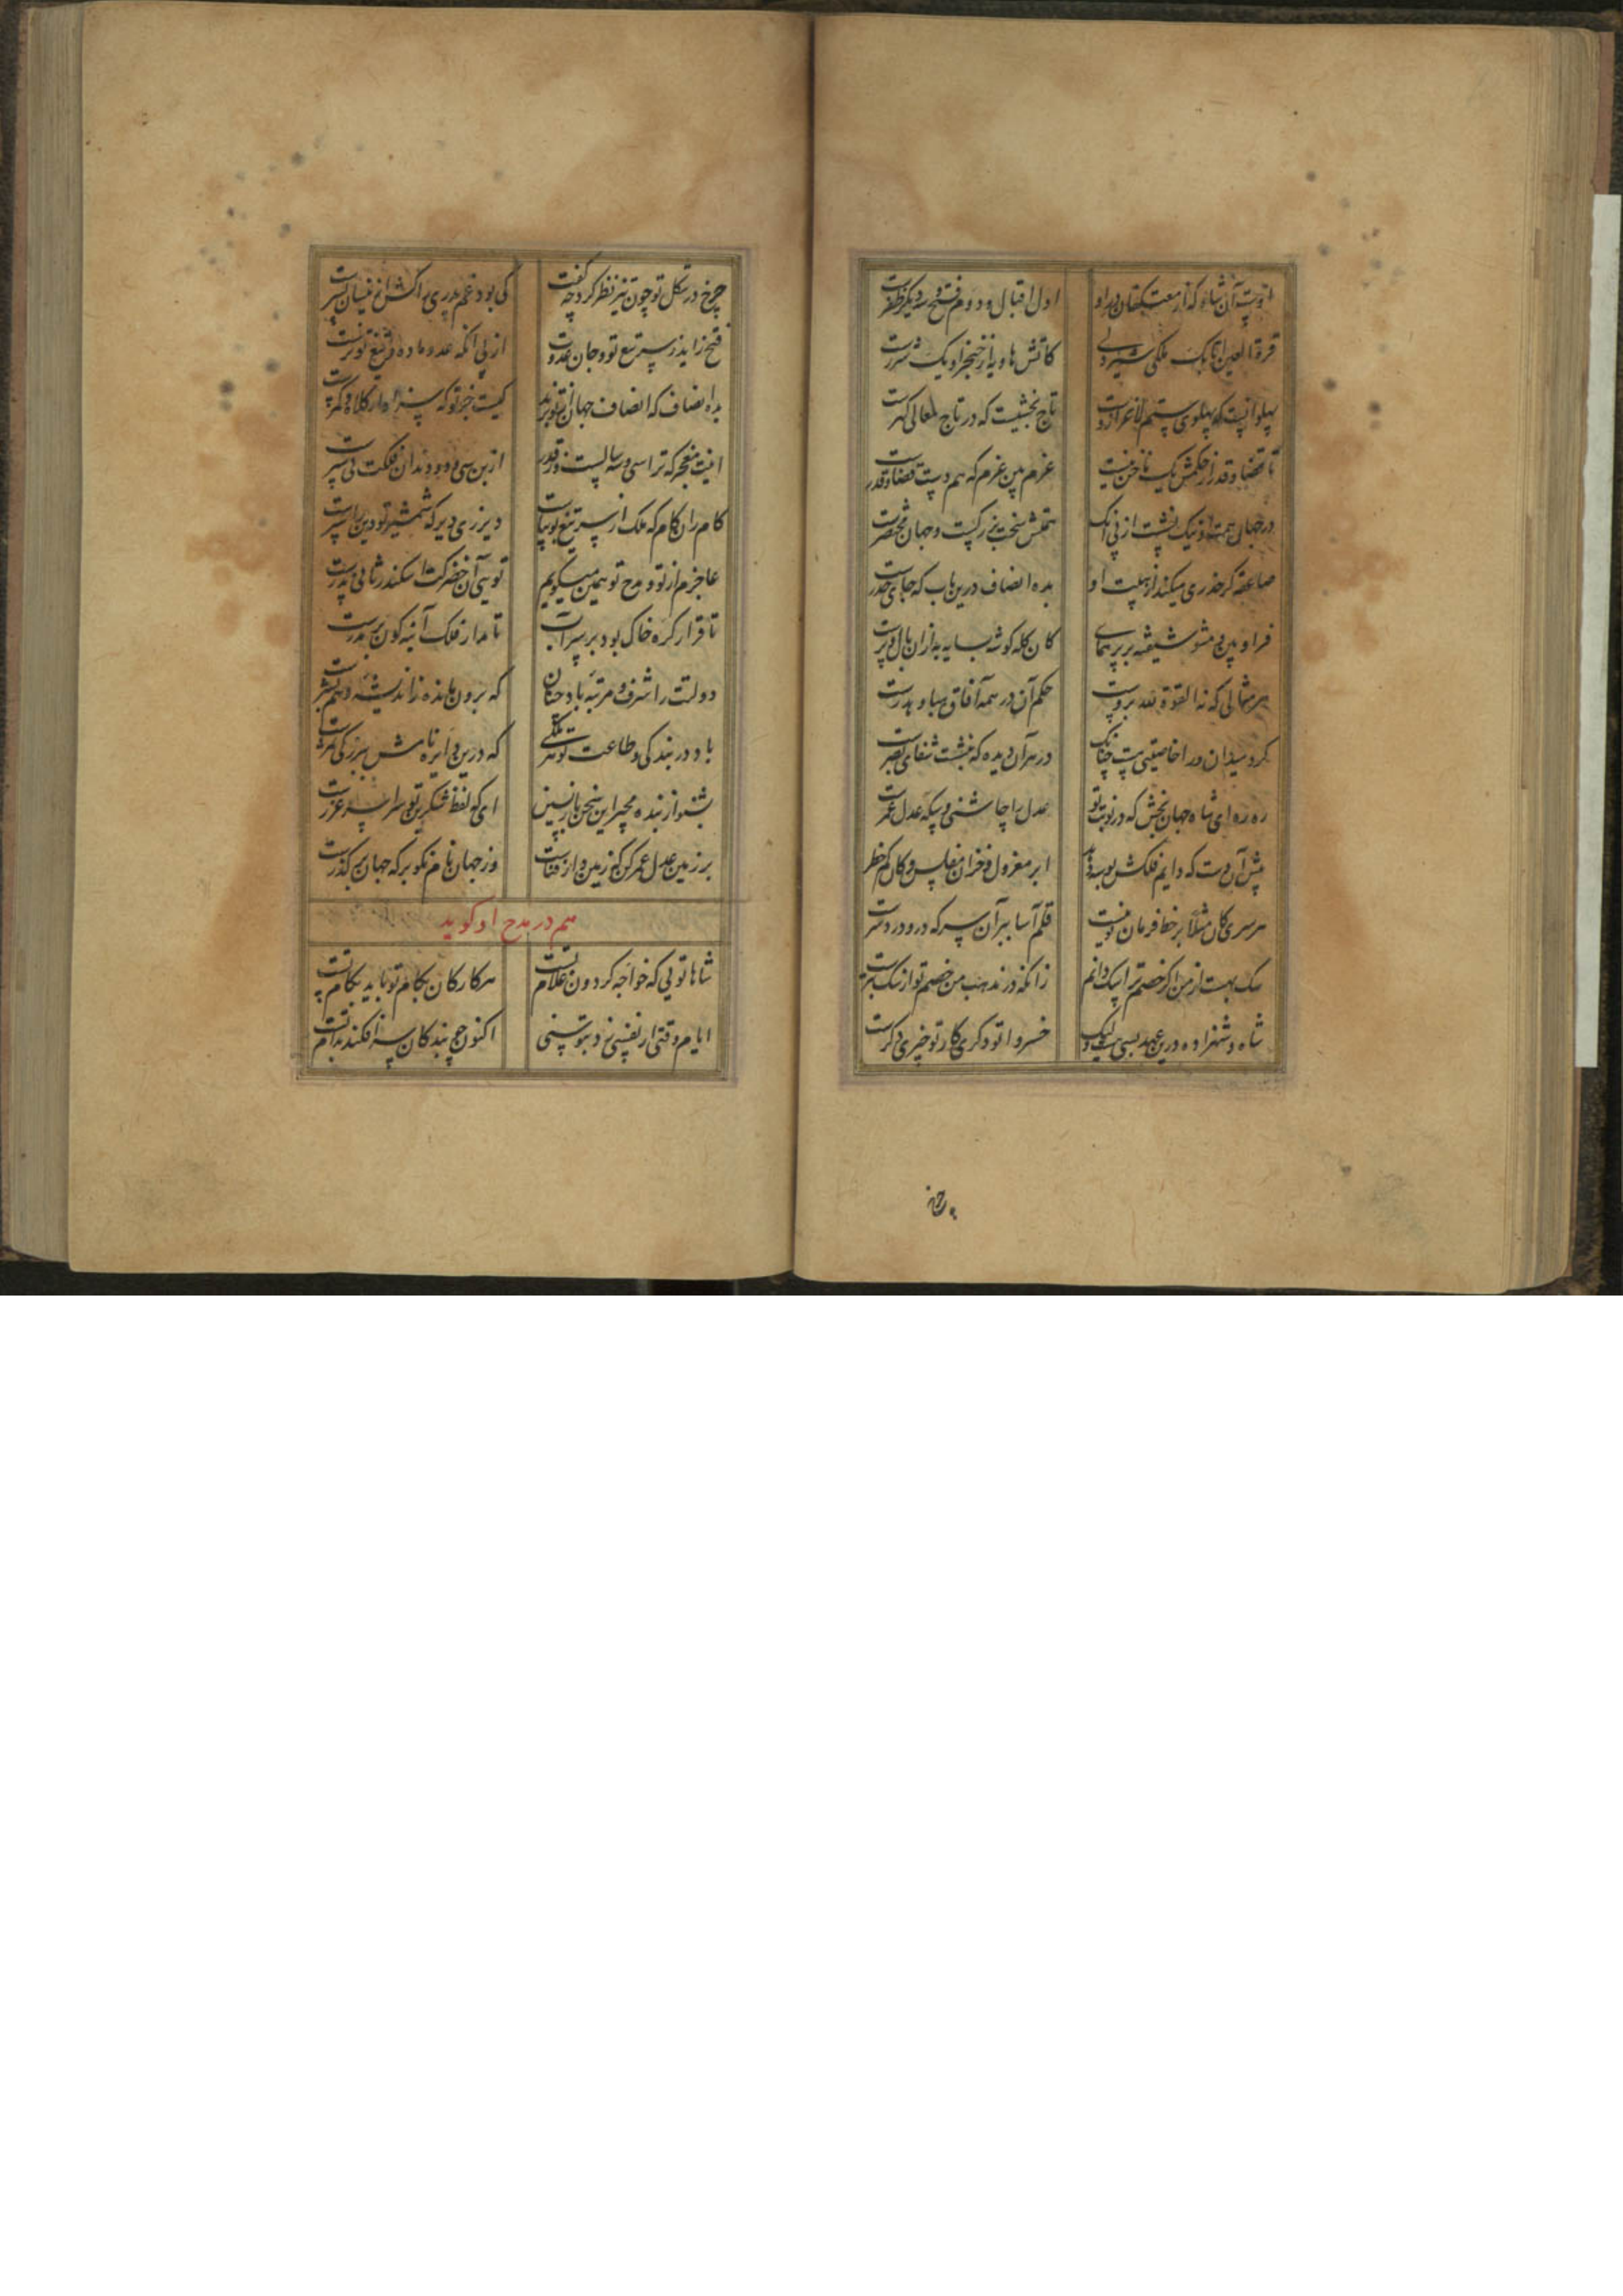 اول اقبال و دوم فتح و سه دیگر ظفرست
قرة العین اتابک ملکی شیردلی
کاتش هاویه از خنجر او یک شررست
تاج بخشیست که در تاج معالی گهرست
تا قضا و قدر از حکمش یک ناخن نیست
عزم بین عزم که هم دست قضا و قدرست
در جهان همت او نیک
صاعقه گر حذری میکند از هیبت او
بده انصاف درین باب که جای حذرست
فر او بین و مشو شیفته بر پر همای
کان کله گوشه بسایه به از ان بال و پرست
حکم آن در همه آفاق هبا و هدرست
گرد میدان ورا خاصیتی هست چنانک
در هر آن دیده که بنشست شفای بصرست
ره ره ای شاه جهان بخش که در نوبت تو
عدل را چاشنی و سکه عدل عمرست
پیش آن دست که دایم فلکش بوسه دهد
ابر معزول و خزان مفلس و کان کم خطر
هر سری کان مثلا بر خط فرمان تو نیست
قلم آسا ببر آن سر که درو درد سرست
سگ بهست از من اگر خصم ترا سگ دانم
زانکه در مذهب من خصم تو از سگ بترست
شاه و شهزاده درین عهد بسی هست ولیک
خسروا تو دگری کار تو چیزی دگرست
چرخ در شکل تو چون تیز نظر کرد چه گفت
کی بود غم پدری را کش ازینسان پسرست
فتح زاید ز سر تیغ تو و جان عدوت
از پی آنکه عدو ماده و تیغ تو نرست
بده انصاف که انصاف جهان از تو برند
کیست جز تو که سزاوار کلاه و کمرست
اینت معجز که ترا سی و سه سالست ز قدر
از بن سی و دو دندان فلکت پی سپرست
کام ران کام که ملک از سر تیغ تو بپاست
دیر زی دیر که شمشیر تو دین را سپرست
عاجزم از تو و مدح تو همین میگویم
تویی آن خضر کت اسکندر ثانی پدرست
تا قرار کره خاک بود بر سر آب
تا مدار فلک آینه گون بر مدرست
دولتت را شرف و مرتبه باد چنان
که برون مانده ز اندیشه و وهم بشرست
باد در بندگی و طاعت تو هر ملکی
که درین دایره نامش ببزرگی سمرست
بشنو از بنده مجیر این سخن بازپسین
ای که لفظ شکرین تو سراسر غررست
بر زمین عدل عمر کن که زمین دار فناست
وز جهان نام نکو بر که جهان بر گذرست
هم در مدح او گوید
شاها تویی که خواجه گردون غلام تست
هر کار کان بکام تو باید بکام تست
ایام وقتی ار نفسی زد بتوسنی
اکنون چو بندگان سر افکنده رام تست